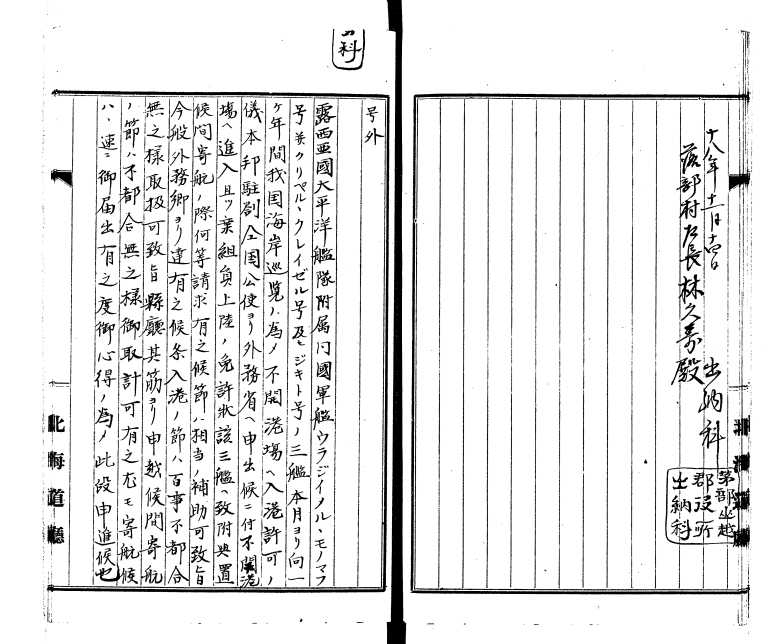 十八年十一月十四日
落部村戸長林久寿殿
出納科
茅部山越
郡役所
出納科
号外
露西亜國太平洋艦隊附属同國軍艦ウラジイメル、モノマフ
号并クリペル、クレイゼル号及ヒジキト号ノ三艦本月ヨリ向一
ケ年間我国海岸巡覧ノ為メ不開港場ヘ入港許可ノ
儀本邦駐劄仝国公使ヨリ外務省ヘ申出候ニ付不開港
場ヘ進入且ツ乗組員上陸ノ免許状該三艦ヘ致附與置
候間寄航ノ際何等請求有之候節ハ相当ノ補助可致旨
今般外務卿ヨリ達有之候条入港ノ節ハ百事不都合
無之様取扱可致旨縣廳其筋ヨリ申越候間寄航
ノ節ハ不都合無之様御取計可有之尤モ寄航候
ハヽ速ニ御届出有之度御心得ノ為メ此段申進候也
北海道廳
科